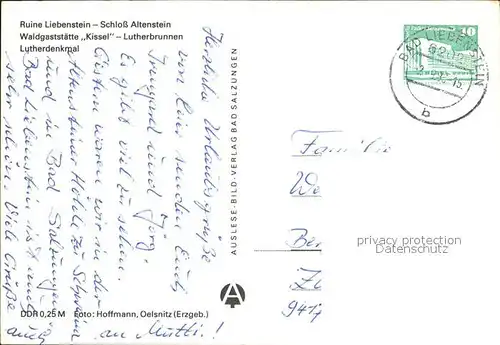 Ruine Liebenstein – Schloß Altenstein
Waldgaststätte „Kissel" – Lutherbrunnen
Lutherdenkmal
Herzliche Urlaubsgrüße
von hier senden Euch
Irmgard und Jörg.
Es gibt viel zu sehen.
Gestern waren wir in der
Altensteiner Höhle zu Schweina
und in Bad Salzungen.
Bad Liebenstein ist auch
sehr schön. Viele Grüße
auch an Mutti!
AUSLESE-BILD-VERLAG BAD SALZUNGEN
A
DDR 0,25 M Foto: Hoffmann, Oelsnitz (Erzgeb.)
10
BAD LIEBENSTEIN
6202
b
Familie
We
Ber
941
privacy protection
by oldthing.de